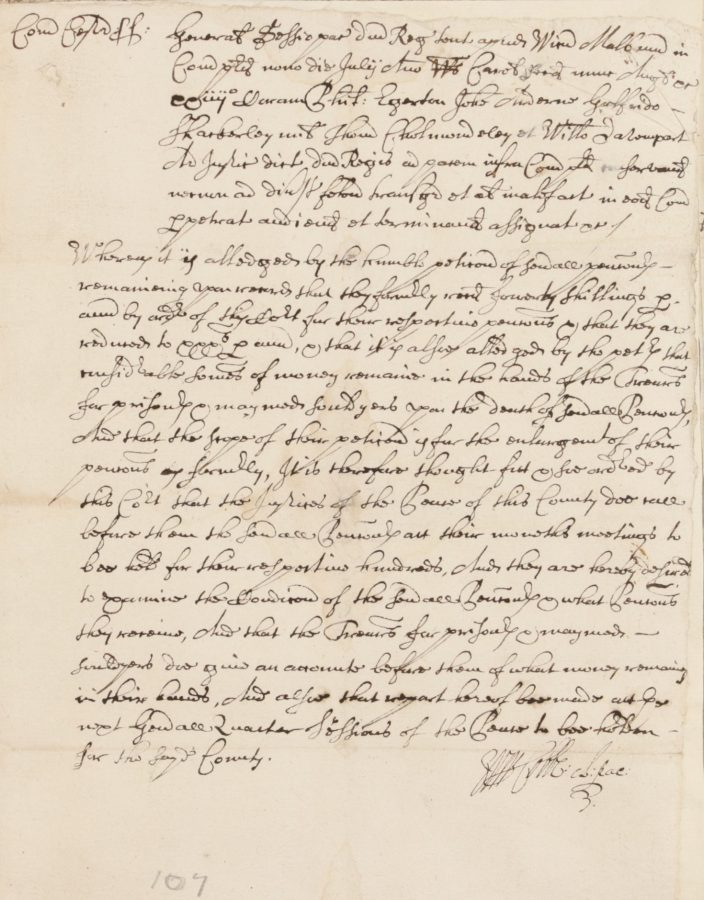 Com Cestr ss: General Sessio pac dni Reg tent apud Wico Malbano in
Com pred nono die July Anno Caroli nunc Angl &c
xxiiijo Coram Phil: Egerton Johe Arderne Galfrido
Shackerley mil Thom Cholmondeley et Willo Davenport
Ar Justic dict dni Regis ad pacem infra Com pred conservand
necnon ad divs felon transgr et al malefact in eod Com
ppetrat audiend et terminand assignat &c
Whereas it is alledged by the humble peticon of sevall penconrs
remaineing upon record that they formrly recd fowerty shillings p
ann by ordr of this Cort for their respective pencons & that they are
reduced to xxxs p ann, & that it is alsoe alledged by the petrs that
considrable somes of money remaine in the hands of the Trears
for prisonrs & maymed souldyers upon the death of sevall Penconrs,
And that the scope of their peticon is for the enlargemt of their
pencons as formrly, It is therefore thought fitt & soe ordred by
this Cort that the Justices of the Peace of this County doe call
before them the sevall Penconrs att their moneths meetings to
bee held for their respective hundreds, And they are hereby desired
to examine the Condicon of the sevall Penconrs & what Pencons
they receive, And that the Trears for prisonrs & maymed
souldyers doe give an accompte before them of what money remaines
in their hands, And alsoe that report hereof bee made att the
next Genall Quarter Sessions of the Peace to bee holden
for the sayd County.
Cl: pac:
107